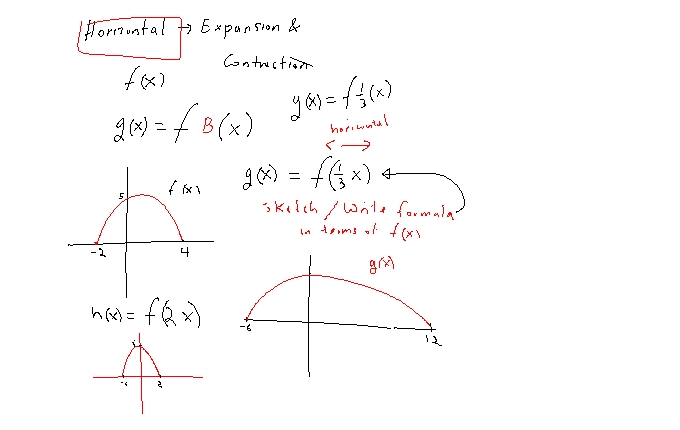 Horizontal → Expansion &
Contraction
f(x)
g(x) = f B(x)
g(x) = f 1/3 (x)
horizontal
g(x) = f(1/3 x)
sketch / Write formula
in terms of f(x)
5
f(x)
-2
4
g(x)
-6
12
h(x) = f(2x)
2